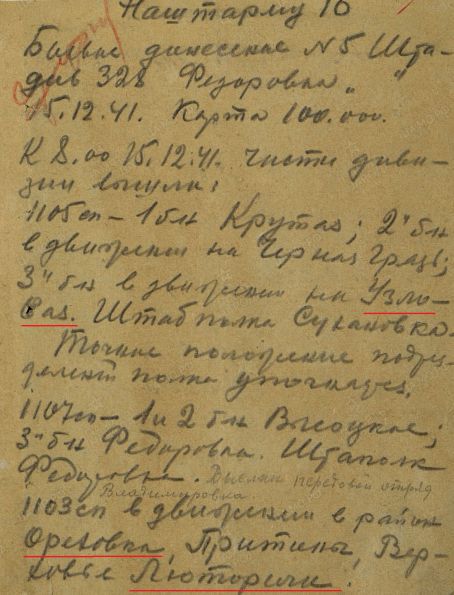 Наштарму 10
Боевое донесение N 5 Шта-
див 328 Федоровка " "
15.12.41. Карта 100.000.
К 8.00 15.12.41. части диви-
зии вышли:
1105сп – 1 бн Крутая; 2й бн
в движении на Черная Грязь;
3й бн в движении на Узло-
вая. Штаб полка Сухановка.
Точное положение подраз-
делений полка уточняется.
1107сп – 1 и 2 бн Высоцкое;
3й бн Федоровка. Штаполк
Федоровка. Выслан передовой отряд
Владимировка.
1103сп в движении в район
Ореховка, Притины, Вер-
ховье Люторичи.